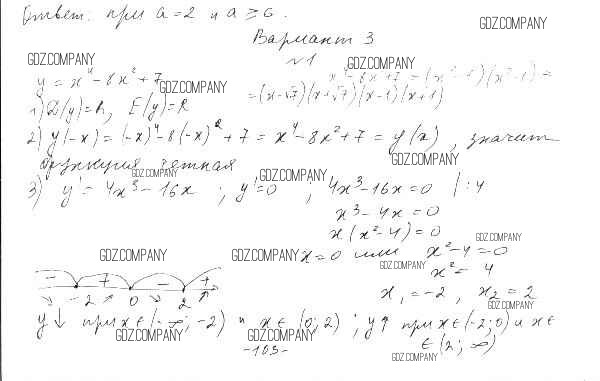 Ответ: при a = 2 и a ≥ 6.
GDZ.COMPANY
Вариант 3
GDZ.COMPANY
№1
GDZ.COMPANY
y = x⁴ - 8x² + 7
GDZ.COMPANY
x⁴ - 8x² + 7 = (x² - 7)(x² - 1) =
= (x - √7)(x + √7)(x - 1)(x + 1)
1) D(y) = R, E(y) = R
2) y(-x) = (-x)⁴ - 8(-x)² + 7 = x⁴ - 8x² + 7 = y(x), значит
функция четная
GDZ.COMPANY
GDZ.COMPANY
GDZ.COMPANY
3) y' = 4x³ - 16x ; y' = 0 ; 4x³ - 16x = 0 | : 4
x³ - 4x = 0
x(x² - 4) = 0
GDZ.COMPANY
GDZ.COMPANY
GDZ.COMPANY
x = 0 или x² - 4 = 0
GDZ.COMPANY
x² = 4
- + - +
-2 0 2
x₁ = -2, x₂ = 2
GDZ.COMPANY
y↓ при x ∈ (-∞; -2) и x ∈ (0; 2) ; y↑ при x ∈ (-2; 0) и x ∈
GDZ.COMPANY
GDZ.COMPANY
∈ (2; ∞)
-103-
GDZ.COMPANY